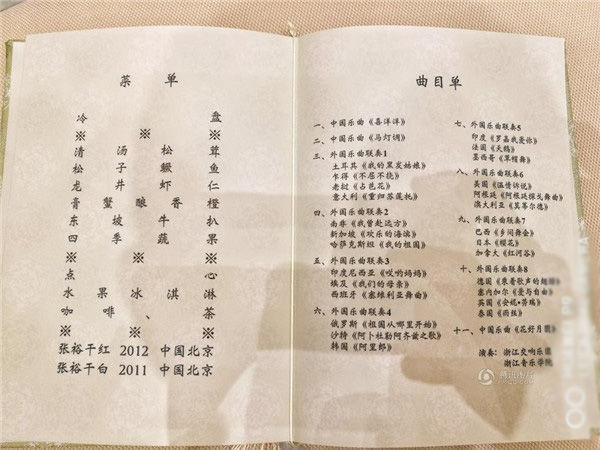 菜 单
冷 盘
※ ※ ※
清 汤 松 茸
松 子 鳜 鱼
龙 井 虾 仁
膏 蟹 酿 香 橙
东 坡 牛 扒
四 季 蔬 果
※ ※
点 心
水 果 冰 淇 淋
咖 啡 、 茶
※ ※ ※
张裕干红 2012 中国北京
张裕干白 2011 中国北京
曲目单
一、中国乐曲《喜洋洋》
二、中国乐曲《马灯调》
三、外国乐曲联奏1
土耳其《我的黑发姑娘》
乍得《不屈不挠》
老挝《占芭花》
意大利《重归苏莲托》
四、外国乐曲联奏2
南非《我曾赴远方》
新加坡《欢乐的海滨》
哈萨克斯坦《我的祖国》
五、外国乐曲联奏3
印度尼西亚《哎哟妈妈》
埃及《我们的母亲》
西班牙《塞维利亚舞曲》
六、外国乐曲联奏4
俄罗斯《祖国从哪里开始》
沙特《阿卜杜勒阿齐兹之歌》
韩国《阿里郎》
七、外国乐曲联奏5
印度《罗嘉我爱你》
法国《天鹅》
墨西哥《草帽舞》
八、外国乐曲联奏6
美国《温情诉说》
阿根廷《阿根廷探戈舞曲》
澳大利亚《莫蒂尔德》
九、外国乐曲联奏7
巴西《乡间舞会》
日本《樱花》
加拿大《红河谷》
十、外国乐曲联奏8
德国《乘着歌声的翅膀》
塞内加尔《爱与自由》
英国《安妮·劳瑞》
泰国《雨丝》
十一、中国乐曲《花好月圆》
演奏：浙江交响乐团
浙江音乐学院